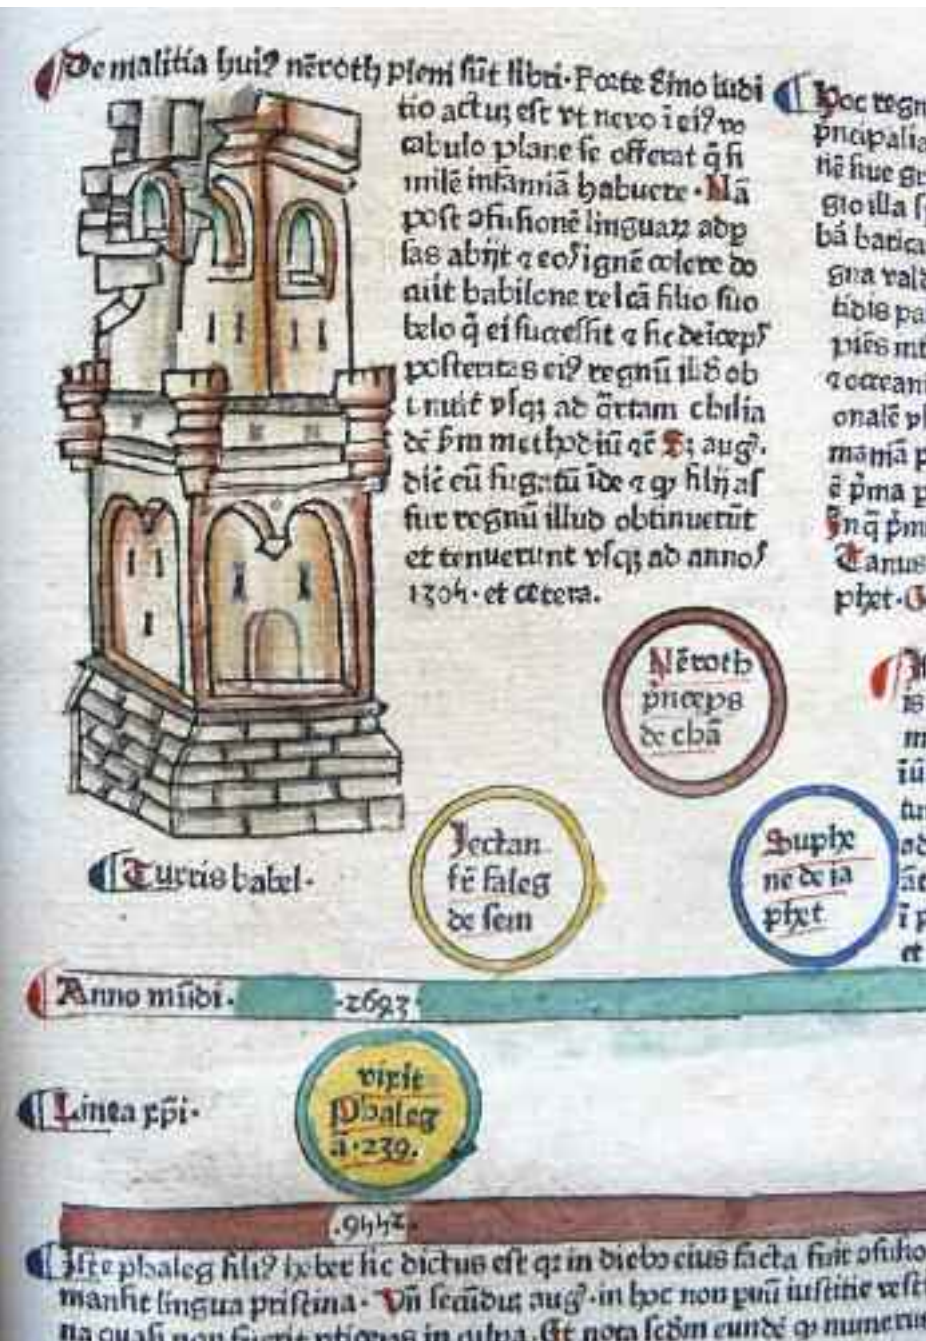 De malitia hui⁹ nēroth pleni sūt libri. Forte diuīo iudi
tio actuȝ est vt nero ī ei⁹ vo
cabulo plane se offerat q̄ si
milē infamiā habuere. Nā
post ↄfusionē linguaꝝ ad ꝑ
sas abijt ⁊ eos ignē colere do
cuit babilone relcā filio suo
belo q̄ ei successit ⁊ sic deīceps
posteritas ei⁹ regnū illud ob
inuit vsqȝ ad q̄rtam chilia
dē ẜm methodiū ⁊ē Sȝ aug⁹.
dic̄ eū fugatū īde ⁊ ꝙ filij as
sur regnū illud obtinuerūt
et tenuerunt vsqȝ ad annos
1304. et cetera.
Hoc regn
pncipalia
gio illa s
bā barica
gna vald
tidis pa
⁊ occeani
onalē
mania p
ē pma p
In q̄ pm
Tanus
phet.
Nēroth
pͥnceps
de chā
Jectan
fr̄ faleg
de sem
Suphe
ne de ia
phet
Turris babel.
Anno mūdi. .2693
Linea xp̄i.
vixit
Phaleg
ā. 239.
.9442.
Iste phaleg fili⁹ heber sic dictus est qꝛ in diebꝰ eius facta fuit ↄfusio
mansit lingua pristina. Vn̄ scd̄uȝ aug⁹. in hoc non
na quasi non in culpa. Et nota scd̄m eundē ꝙ numerus